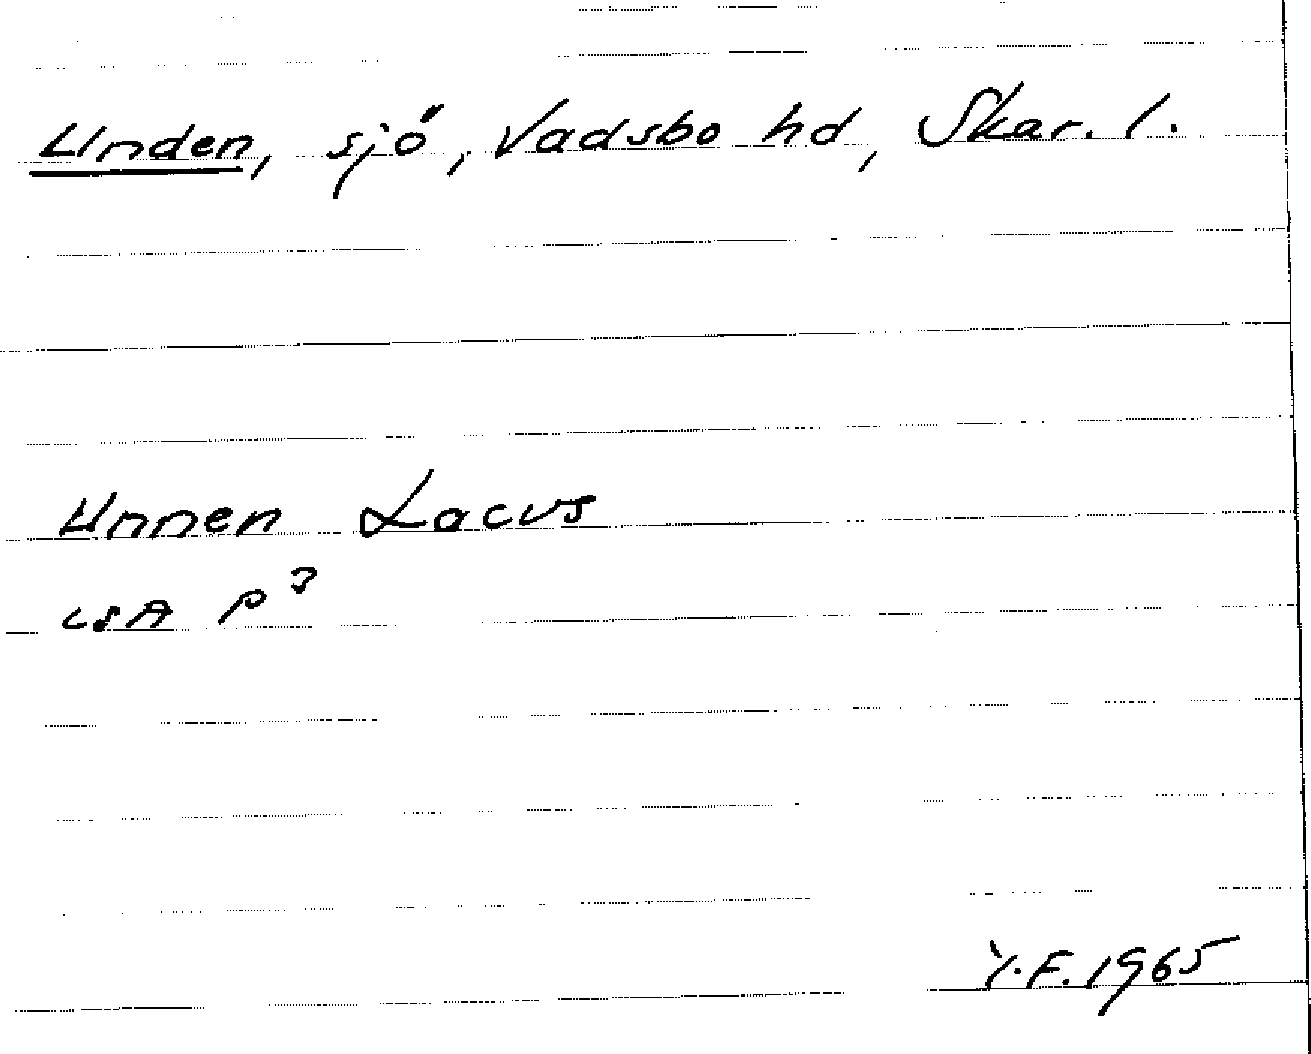 Unden, sjö, Vadsbo hd, Skar. l.
Unnen Lacus
LSA P³
Y.F. 1965